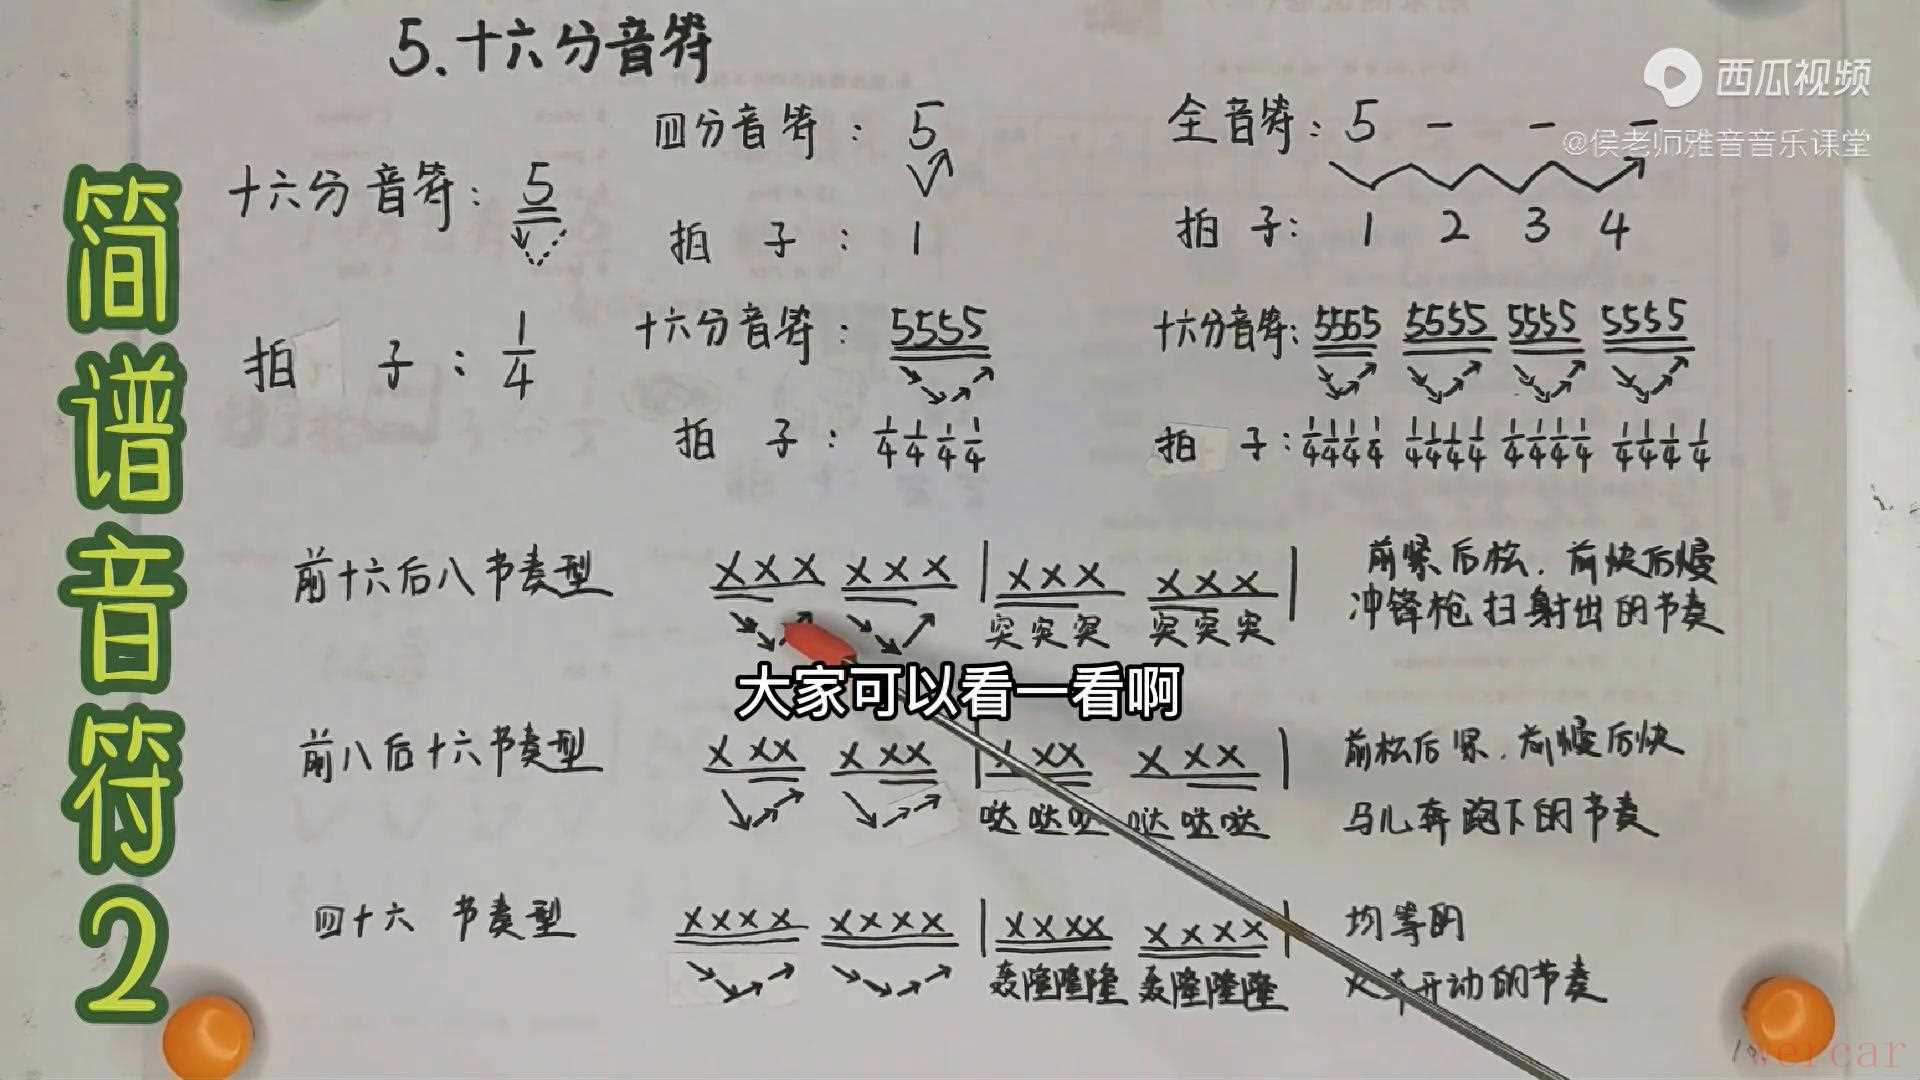 5.十六分音符
西瓜视频
@侯老师雅音音乐课堂
简谱音符2
四分音符：5
全音符：5 - - -
十六分音符：5
拍子：1
拍子：1 2 3 4
拍子：1/4
十六分音符：5555
十六分音符：5555 5555 5555 5555
拍子：1/4 1/4 1/4 1/4
拍子：1/4 1/4 1/4 1/4 1/4 1/4 1/4 1/4 1/4 1/4 1/4 1/4 1/4 1/4 1/4 1/4
前十六后八节奏型 XXX XXX | XXX XXX | 前紧后松，前快后慢
突突突 突突突 冲锋枪扫射出的节奏
大家可以看一看啊
前八后十六节奏型 X XX X XX | X XX X XX | 前松后紧，前慢后快
哒哒哒 哒哒哒 马儿奔跑下的节奏
四十六 节奏型 XXXX XXXX | XXXX XXXX | 均等的
轰隆隆隆 轰隆隆隆 火车开动的节奏
wercar